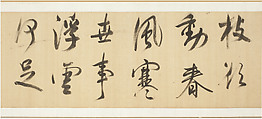 枝欲
動春
風寒
世事
浮雲
何足